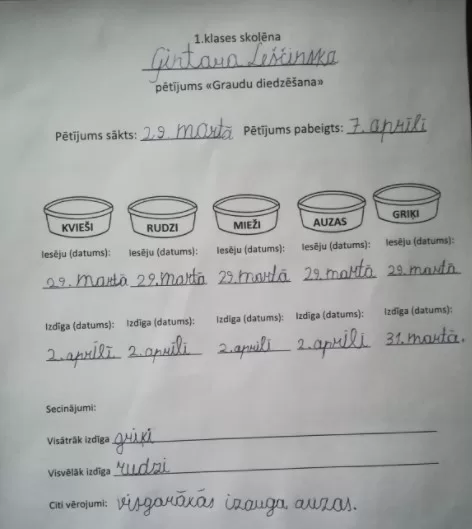 1.klases skolēna
Ģintara Leščinska
pētījums «Graudu diedzēšana»
Pētījums sākts: 29. martā Pētījums pabeigts: 7. aprīlī
KVIEŠI RUDZI MIEŽI AUZAS GRIĶI
Iesēju (datums): Iesēju (datums): Iesēju (datums): Iesēju (datums): Iesēju (datums):
29. martā 29. martā 29. martā 29. martā 29. martā
Izdīga (datums): Izdīga (datums): Izdīga (datums): Izdīga (datums): Izdīga (datums):
2. aprīlī 2. aprīlī 2. aprīlī 2. aprīlī 31. martā.
Secinājumi:
Visātrāk izdīga griķi
Visvēlāk izdīga rudzi
Citi vērojumi: visgarākās izauga auzas.